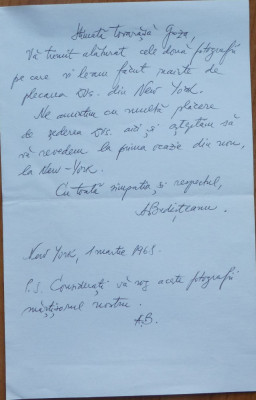 Stimată tovarășă Guza,
Vă trimit alăturat cele două fotografii
pe care vi leam făcut înainte de
plecarea Dvs. din New York.
Ne amintim cu multă plăcere
de șederea Dvs. aici și aștептăm să
vă revedem la prima ocazie din nou,
la New-York.
Cu toată simpatia și respectul,
New York, 1 martie 1965.
P.S Considerați vă rog aceste fotografii
mărțișorul nostru.
A.B.